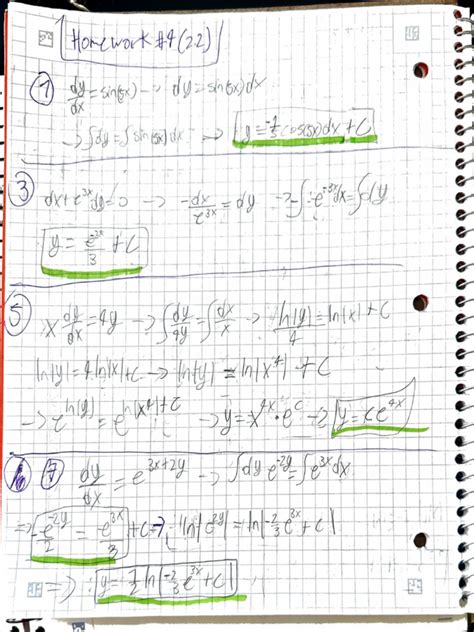 Homework #4 (2.2)
① dy/dx = sin(5x) -> dy = sin(5x)dx
-> ∫dy = ∫sin(5x)dx -> y = -1/5 cos(5x)dx + C
③ dx + e^3x dy = 0 -> -dx/e^3x = dy -> ∫-e^-3x dx = ∫dy
y = e^-3x/3 + C
⑤ x dy/dx = 4y -> ∫dy/4y = ∫dx/x -> ln|y|/4 = ln|x| + C
ln|y| = 4 ln|x| + C -> ln|y| = ln|x^4| + C
-> e^ln|y| = e^ln|x^4|+C -> y = x^4x · e^c -> y = ce^4x
⑦ dy/dx = e^3x+2y -> ∫dy e^-2y = ∫e^3x dx
-e^-2y/2 = e^3x/3 + C ln|e^-2y| = ln|-2/3 e^3x + C|
y = -1/2 ln|-2/3 e^3x + C|